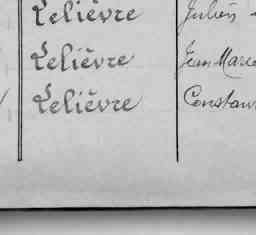 Lelièvre Julien
Lelièvre Jean Marc
Lelièvre Constan